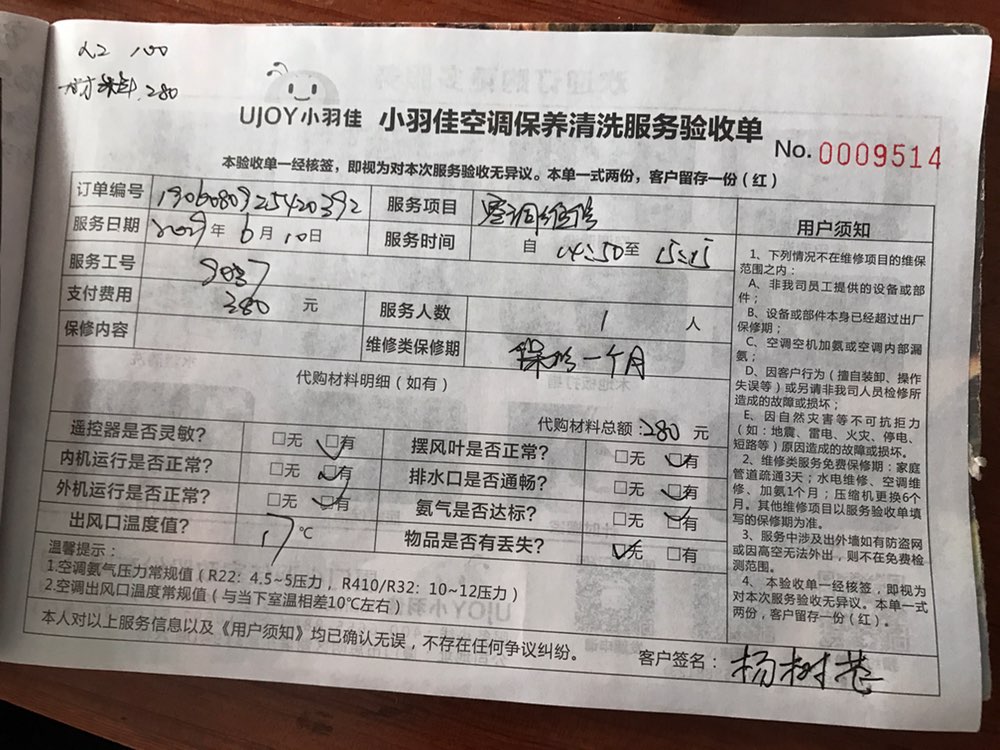 人工 100
材料 280
UJOY小羽佳 小羽佳空调保养清洗服务验收单
No. 0009514
本验收单一经核签，即视为对本次服务验收无异议。本单一式两份，客户留存一份（红）
订单编号 1906080925420392 服务项目 空调维修
服务日期 2019年 6月 10日 服务时间 自 14:50至 15:15
服务工号 9037
支付费用 380 元 服务人数 1 人
保修内容 维修类保修期 保修一个月
代购材料明细（如有）
代购材料总额：280 元
遥控器是否灵敏？ □无 □有 摆风叶是否正常？ □无 □有
内机运行是否正常？ □无 □有 排水口是否通畅？ □无 □有
外机运行是否正常？ □无 □有 氨气是否达标？ □无 □有
出风口温度值？ 17 ℃ 物品是否有丢失？ □无 □有
温馨提示：
1.空调氨气压力常规值（R22：4.5~5压力，R410/R32：10~12压力）
2.空调出风口温度常规值（与当下室温相差10℃左右）
本人对以上服务信息以及《用户须知》均已确认无误，不存在任何争议纠纷。
客户签名：杨树巷
用户须知
1、下列情况不在维修项目的维保
范围之内：
A、非我司员工提供的设备或部
件；
B、设备或部件本身已经超过出厂
保修期；
C、空调空机加氨或空调内部漏
氨；
D、因客户行为（擅自装卸、操作
失误等）或另请非我司人员检修所
造成的故障或损坏；
E、因自然灾害等不可抗拒力
（如：地震、雷电、火灾、停电、
短路等）原因造成的故障或损坏。
2、维修类服务免费保修期：家庭
管道疏通3天；水电维修、空调维
修、加氨1个月；压缩机更换6个
月。其他维修项目以服务验收单填
写的保修期为准。
3、服务中涉及出外墙如有防盗网
或因高空无法外出，则不在免费检
测范围。
4、本验收单一经核签，即视为
对本次服务验收无异议。本单一式
两份，客户留存一份（红）。